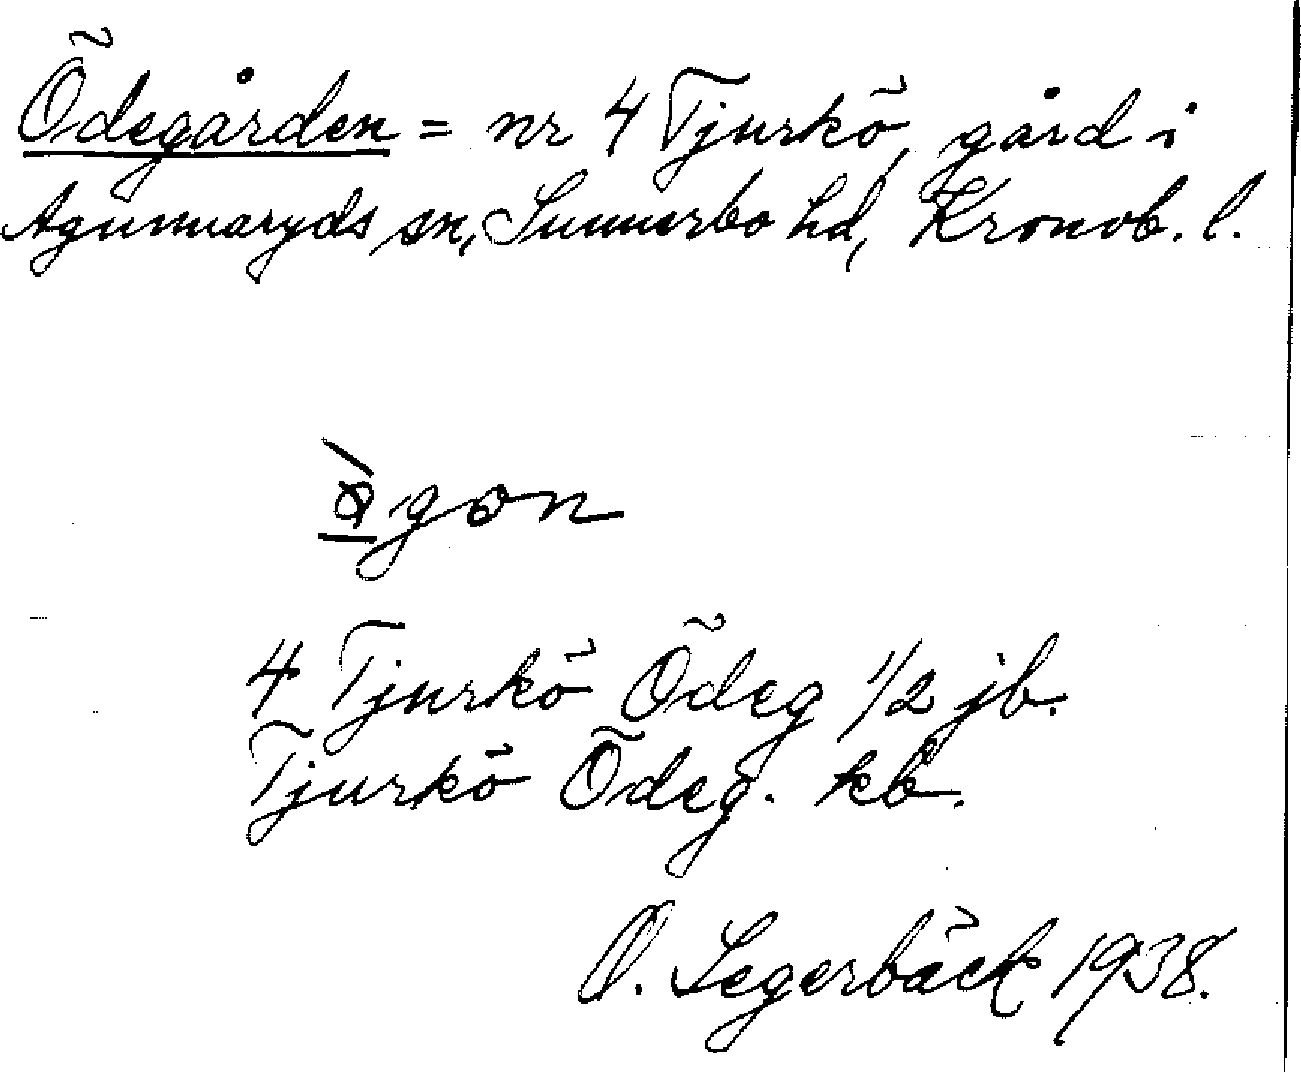 Ödegården = nr 4 Tjurkö, gård i
Agunnaryds sn, Sunnerbo hd, Kronob. l.
gon
4 Tjurkö Ödeg 1/2 jb.
Tjurkö Ödeg. kb.
O. Segerbäck 1938.